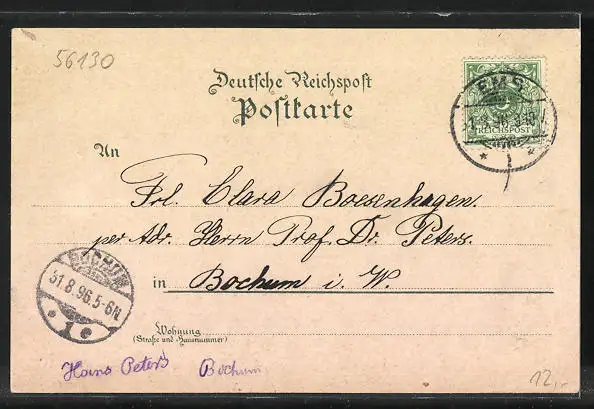 56130
Deutsche Reichspost
Postkarte
EMS
REICHSPOST
An
Frl. Clara Boesenhagen.
per Adr. Herrn Prof. Dr. Peters.
in Bochum i. W.
BOCHUM
31.8.96.5-6N.
1
Wohnung
(Straße und Hausnummer)
Hans Peters Bochum
12,-